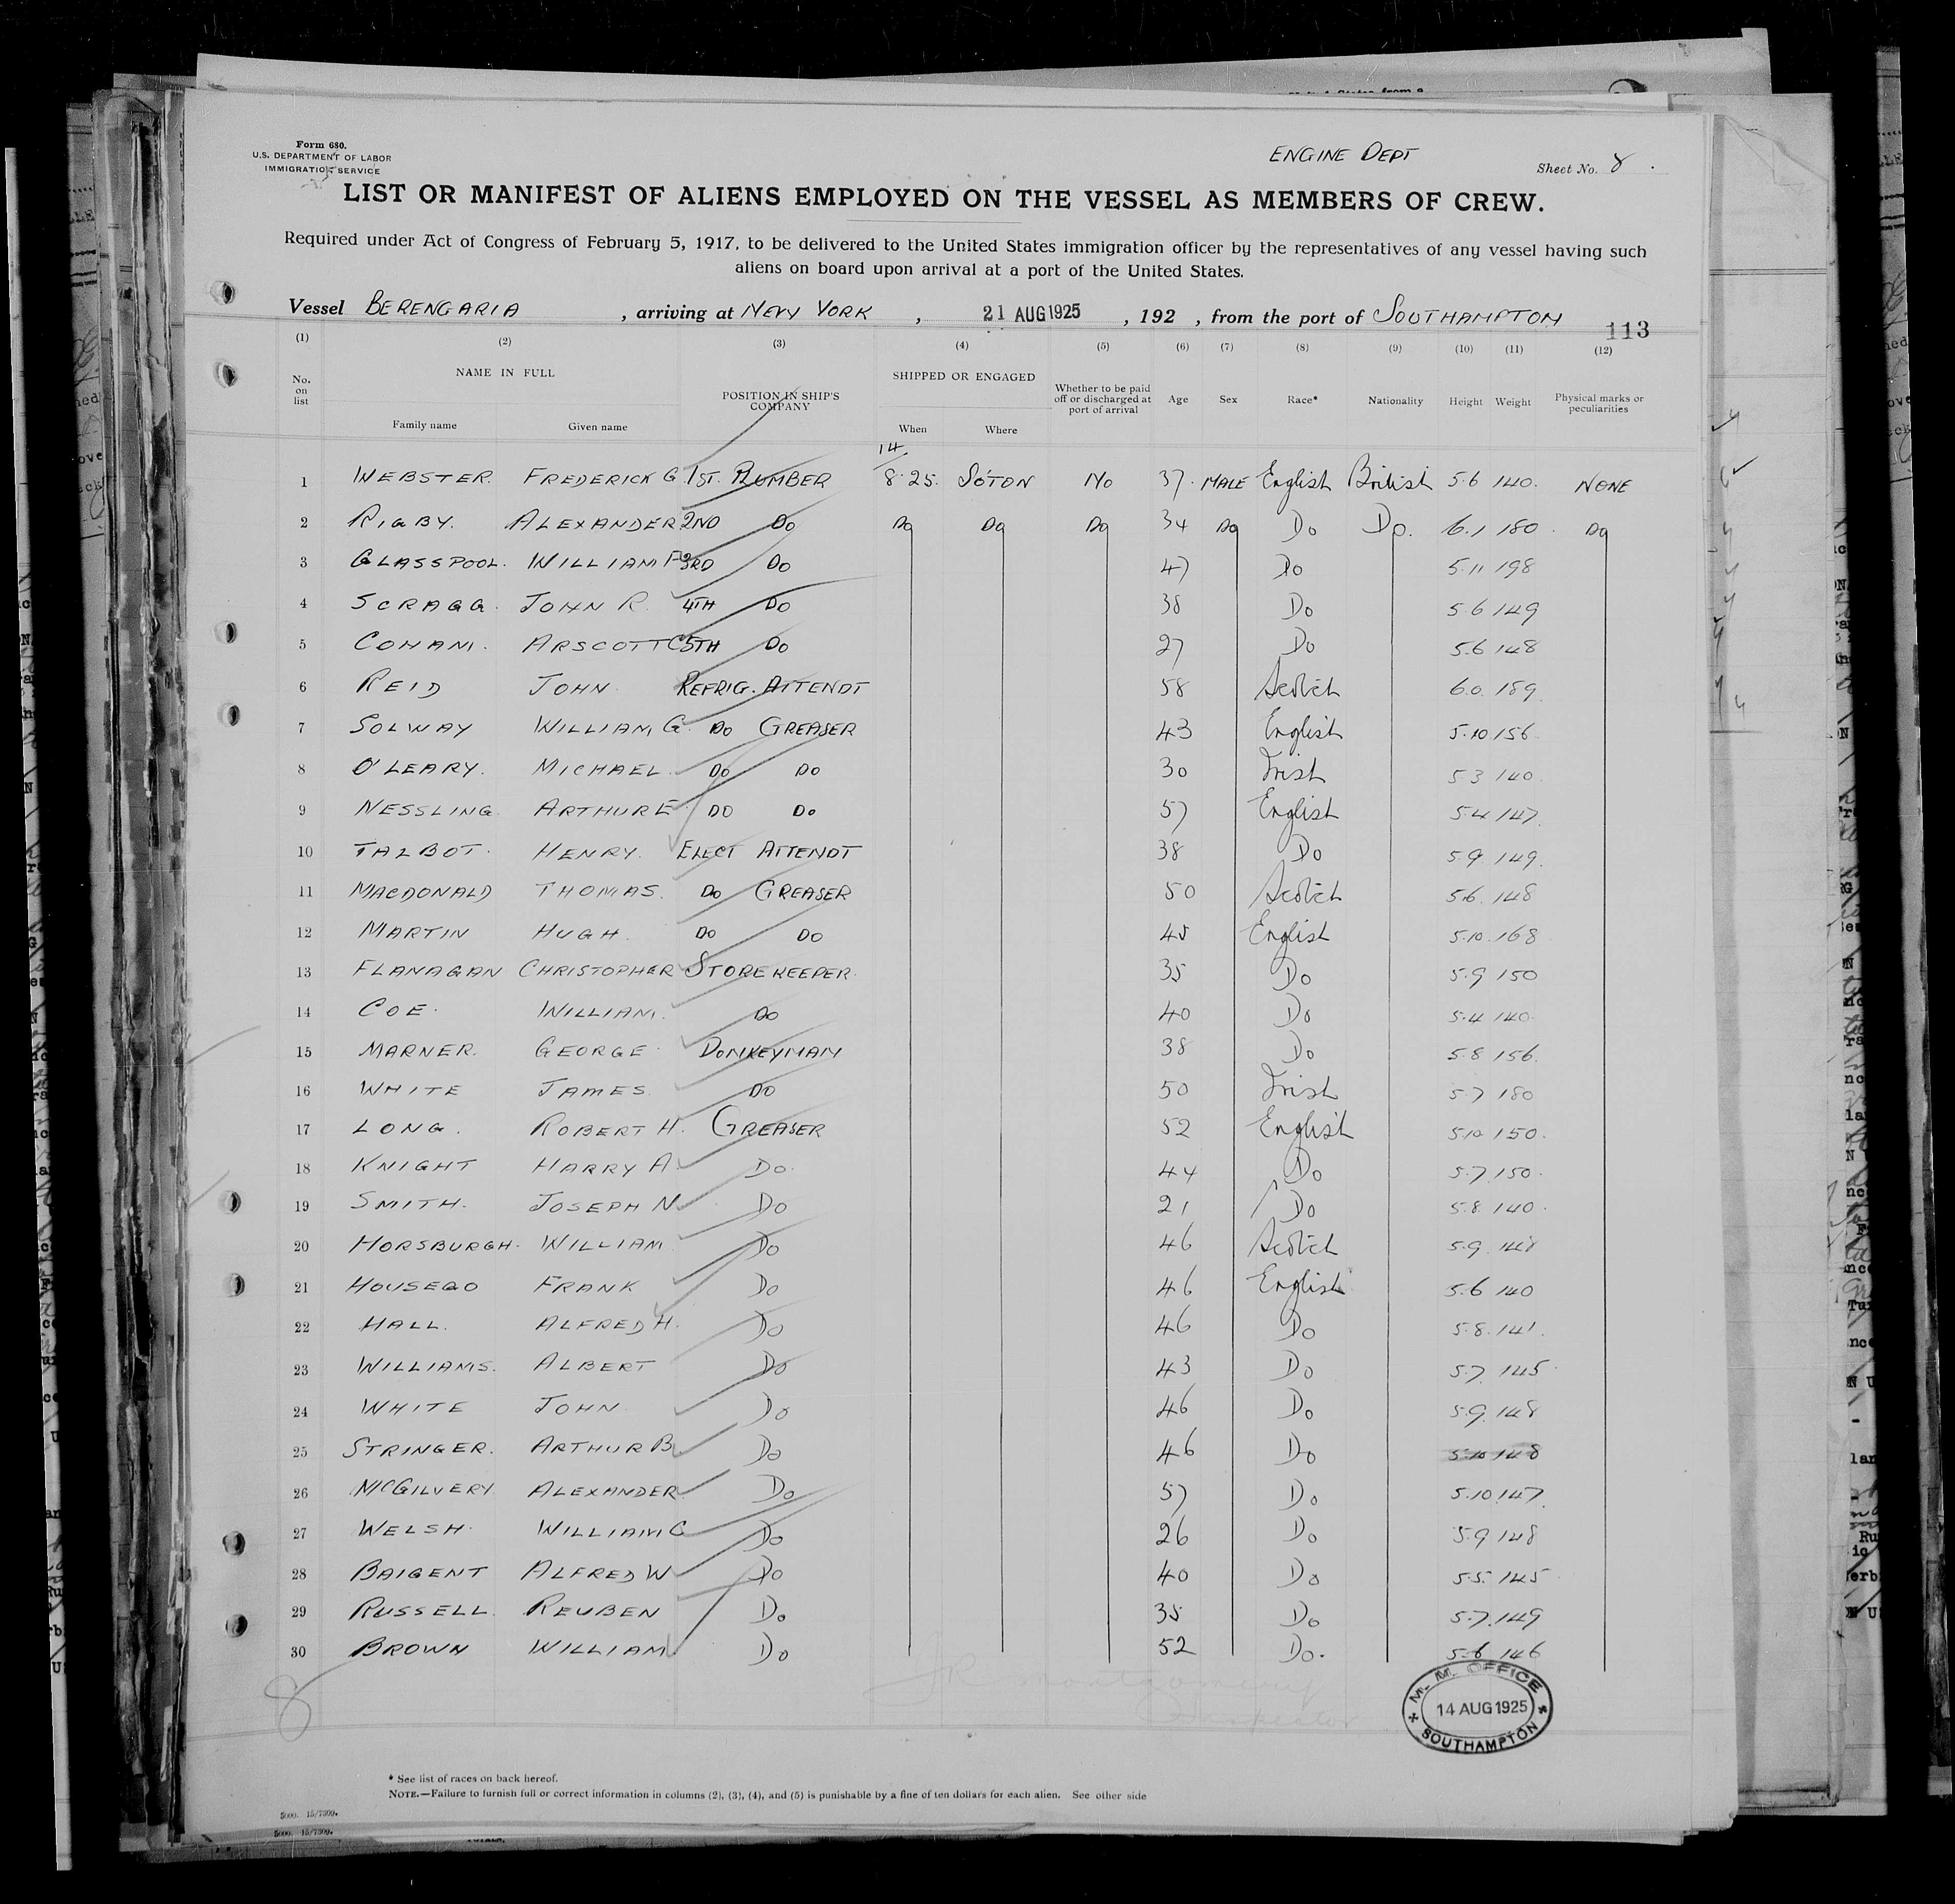 Form 680.
U.S. DEPARTMENT OF LABOR
IMMIGRATION SERVICE
ENGINE DEPT
Sheet No. 8
LIST OR MANIFEST OF ALIENS EMPLOYED ON THE VESSEL AS MEMBERS OF CREW.
Required under Act of Congress of February 5, 1917, to be delivered to the United States immigration officer by the representatives of any vessel having such
aliens on board upon arrival at a port of the United States.
Vessel BERENGARIA , arriving at NEW YORK , 21 AUG 1925 , 192 , from the port of SOUTHAMPTON
113
(1) (2) (3) (4) (5) (6) (7) (8) (9) (10) (11) (12)
No. on list NAME IN FULL POSITION IN SHIP'S COMPANY SHIPPED OR ENGAGED Whether to be paid off or discharged at port of arrival Age Sex Race* Nationality Height Weight Physical marks or peculiarities
Family name Given name When Where
1 WEBSTER. FREDERICK G. 1ST. PLUMBER 14/8.25. SOTON No 37. MALE English British 5.6 140. NONE
2 RIGBY. ALEXANDER 2ND Do Do Do Do 34 Do Do Do. 6.1 180. Do
3 GLASSPOOL. WILLIAM F 3RD Do 47 Do 5.11 198
4 SCRAGG. JOHN R. 4TH Do 38 Do 5.6 149
5 COHAM. ARSCOTT C 5TH Do 27 Do 5.6 148
6 REID JOHN. REFRIG. ATTENDT 58 Scotch 6.0. 189.
7 SOLWAY WILLIAM G. Do GREASER 43 English 5.10 156
8 O'LEARY. MICHAEL. Do Do 30 Irish 5.3 140.
9 NESSLING ARTHUR E. DO Do 57 English 5.4 147.
10 TALBOT. HENRY. ELECT ATTENDT 38 Do 5.9. 149.
11 MACDONALD THOMAS. Do GREASER 50 Scotch 5.6. 148
12 MARTIN HUGH. Do Do 45 English 5.10. 168
13 FLANAGAN CHRISTOPHER STOREKEEPER. 35 Do 5.9 150
14 COE. WILLIAM. Do 40 Do 5.4 140.
15 MARNER. GEORGE. DONKEYMAN 38 Do 5.8 156.
16 WHITE JAMES. Do 50 Irish 5.7 180
17 LONG. ROBERT H. GREASER 52 English 5.10 150.
18 KNIGHT HARRY A. Do. 44 Do 5.7. 150.
19 SMITH. JOSEPH N. Do 21 Do 5.8. 140.
20 HORSBURGH. WILLIAM Do 46 Scotch 5.9. 148
21 HOUSEGO FRANK Do 46 English 5.6 140
22 HALL. ALFRED H. Do 46 Do 5.8. 141.
23 WILLIAMS. ALBERT Do 43 Do 5.7. 145.
24 WHITE JOHN Do 46 Do 5.9. 148
25 STRINGER. ARTHUR B. Do 46 Do 5.10 148
26 MCGILVERY. ALEXANDER. Do 57 Do 5.10. 147.
27 WELSH. WILLIAM C Do 26 Do 5.9 148
28 BAIGENT ALFRED W Do 40 Do 5.5. 145
29 RUSSELL REUBEN Do 35 Do 5.7. 149
30 BROWN WILLIAM Do 52 Do. 5.6 146
8
J R Montgomery
Inspector
M. M. OFFICE
14 AUG 1925
SOUTHAMPTON
* See list of races on back hereof.
NOTE.—Failure to furnish full or correct information in columns (2), (3), (4), and (5) is punishable by a fine of ten dollars for each alien. See other side
5000. 15/7399.
5000. 15/7399.